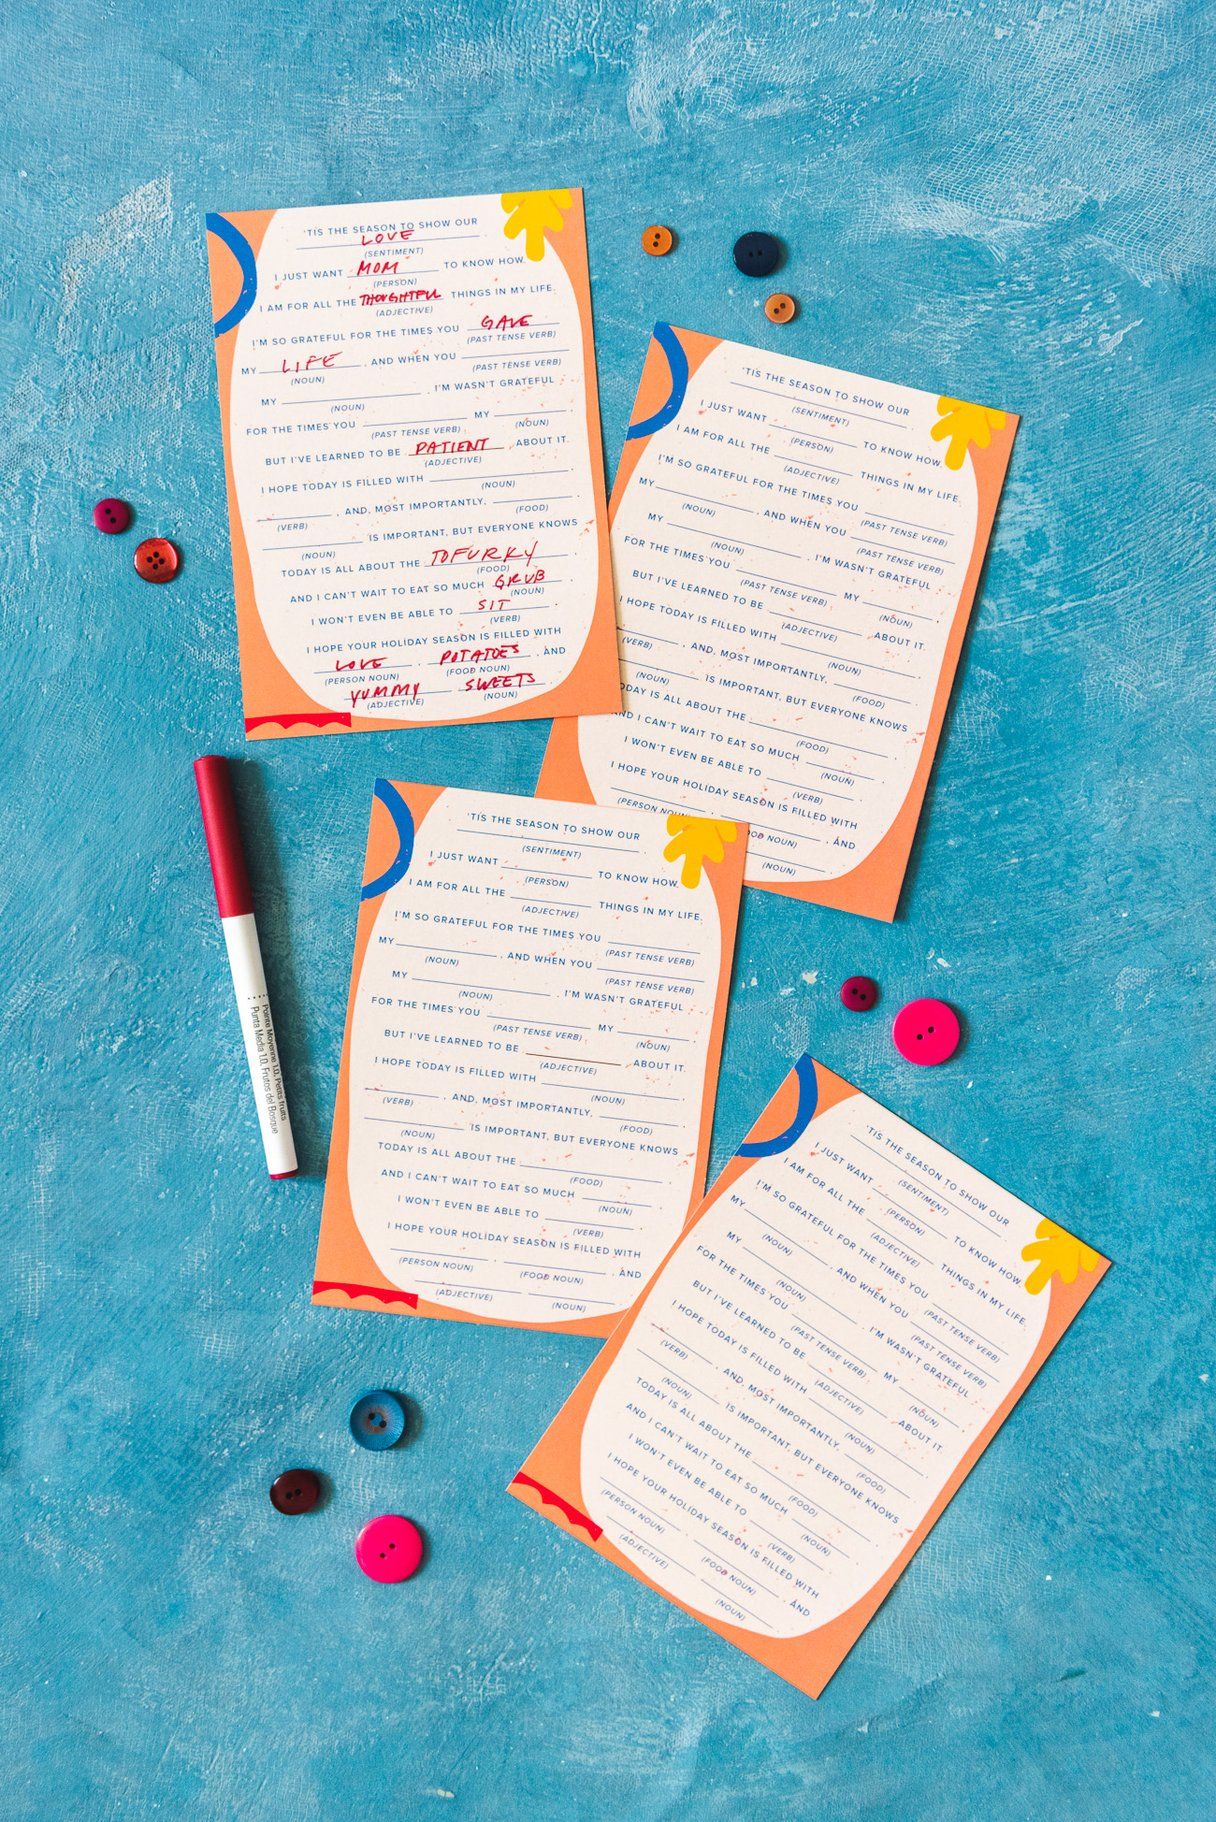 'TIS THE SEASON TO SHOW OUR
LOVE
(SENTIMENT)
I JUST WANT MOM TO KNOW HOW
(PERSON)
I AM FOR ALL THE THOUGHTFUL THINGS IN MY LIFE.
(ADJECTIVE)
I'M SO GRATEFUL FOR THE TIMES YOU GAVE
(PAST TENSE VERB)
MY LIFE, AND WHEN YOU
(NOUN) (PAST TENSE VERB)
MY . I'M WASN'T GRATEFUL
(NOUN)
FOR THE TIMES YOU MY .
(PAST TENSE VERB) (NOUN)
BUT I'VE LEARNED TO BE PATIENT ABOUT IT.
(ADJECTIVE)
I HOPE TODAY IS FILLED WITH
(NOUN)
, AND, MOST IMPORTANTLY, .
(VERB) (FOOD)
IS IMPORTANT, BUT EVERYONE KNOWS
(NOUN)
TODAY IS ALL ABOUT THE TOFURKY
(FOOD)
AND I CAN'T WAIT TO EAT SO MUCH GRUB
(NOUN)
I WON'T EVEN BE ABLE TO SIT .
(VERB)
I HOPE YOUR HOLIDAY SEASON IS FILLED WITH
LOVE , POTATOES , AND
(PERSON NOUN) (FOOD NOUN)
YUMMY SWEETS .
(ADJECTIVE) (NOUN)
'TIS THE SEASON TO SHOW OUR
.
(SENTIMENT)
I JUST WANT TO KNOW HOW
(PERSON)
I AM FOR ALL THE THINGS IN MY LIFE.
(ADJECTIVE)
I'M SO GRATEFUL FOR THE TIMES YOU
(PAST TENSE VERB)
MY , AND WHEN YOU
(NOUN) (PAST TENSE VERB)
MY . I'M WASN'T GRATEFUL
(NOUN)
FOR THE TIMES YOU MY .
(PAST TENSE VERB) (NOUN)
BUT I'VE LEARNED TO BE ABOUT IT.
(ADJECTIVE)
I HOPE TODAY IS FILLED WITH
(NOUN)
, AND, MOST IMPORTANTLY, .
(VERB) (FOOD)
IS IMPORTANT, BUT EVERYONE KNOWS
(NOUN)
TODAY IS ALL ABOUT THE
(FOOD)
AND I CAN'T WAIT TO EAT SO MUCH
(NOUN)
I WON'T EVEN BE ABLE TO .
(VERB)
I HOPE YOUR HOLIDAY SEASON IS FILLED WITH
, AND
(PERSON NOUN) NOUN)
(NOUN)
'TIS THE SEASON TO SHOW OUR
.
(SENTIMENT)
I JUST WANT TO KNOW HOW
(PERSON)
I AM FOR ALL THE THINGS IN MY LIFE.
(ADJECTIVE)
I'M SO GRATEFUL FOR THE TIMES YOU
(PAST TENSE VERB)
MY , AND WHEN YOU
(NOUN) (PAST TENSE VERB)
MY . I'M WASN'T GRATEFUL
(NOUN)
FOR THE TIMES YOU MY .
(PAST TENSE VERB) (NOUN)
BUT I'VE LEARNED TO BE ABOUT IT.
(ADJECTIVE)
I HOPE TODAY IS FILLED WITH
(NOUN)
, AND, MOST IMPORTANTLY, .
(VERB) (FOOD)
IS IMPORTANT, BUT EVERYONE KNOWS
(NOUN)
TODAY IS ALL ABOUT THE
(FOOD)
AND I CAN'T WAIT TO EAT SO MUCH
(NOUN)
I WON'T EVEN BE ABLE TO .
(VERB)
I HOPE YOUR HOLIDAY SEASON IS FILLED WITH
, , AND
(PERSON NOUN) (FOOD NOUN)
(ADJECTIVE) (NOUN)
Pointe Moyenne 1.0, Petits fruits
Punta Media 1.0, Frutos del Bosque
'TIS THE SEASON TO SHOW OUR
.
(SENTIMENT)
I JUST WANT TO KNOW HOW
(PERSON)
I AM FOR ALL THE THINGS IN MY LIFE.
(ADJECTIVE)
I'M SO GRATEFUL FOR THE TIMES YOU
(PAST TENSE VERB)
MY , AND WHEN YOU
(NOUN) (PAST TENSE VERB)
MY . I'M WASN'T GRATEFUL
(NOUN)
FOR THE TIMES YOU MY .
(PAST TENSE VERB) (NOUN)
BUT I'VE LEARNED TO BE ABOUT IT.
(ADJECTIVE)
I HOPE TODAY IS FILLED WITH
(NOUN)
, AND, MOST IMPORTANTLY, .
(VERB) (FOOD)
IS IMPORTANT, BUT EVERYONE KNOWS
(NOUN)
TODAY IS ALL ABOUT THE
(FOOD)
AND I CAN'T WAIT TO EAT SO MUCH
(NOUN)
I WON'T EVEN BE ABLE TO .
(VERB)
I HOPE YOUR HOLIDAY SEASON IS FILLED WITH
, , AND
(PERSON NOUN) (FOOD NOUN)
(ADJECTIVE) (NOUN)